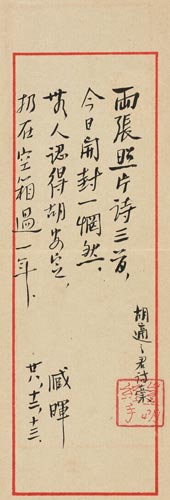 兩張照片詩三首，
今日開封一惘然．
無人認得胡安定，
扔在空箱過一年．
臧暉
廿八，十二，十三．
胡適之君詩稾